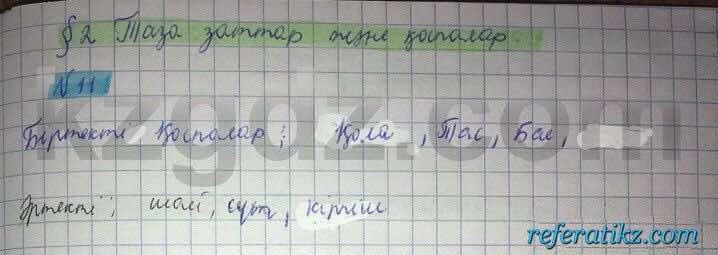 § 2 Таза заттар және қоспалар.
№ 11
Біртекті Қоспалар: Қола, Тас, Бал,
Әртекті; шай, сүт, кірпіш
kzgdz.com
referatikz.com